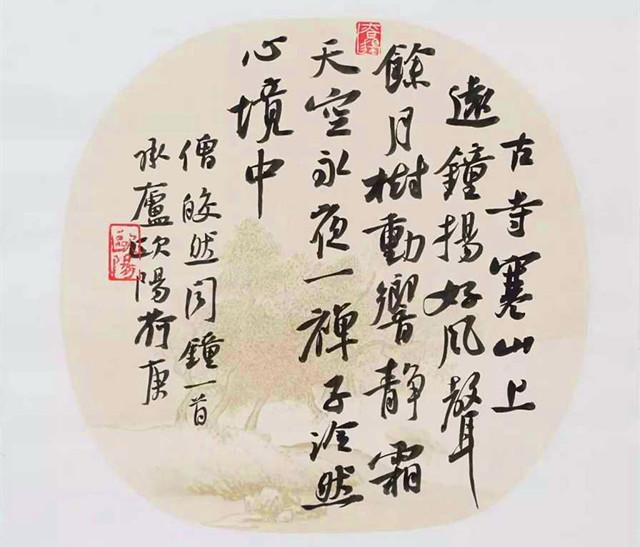 古寺寒山上
遠鐘揚好风聲
餘月樹動響静霜
天空永夜一禅子泠然
心境中
僧皎然闻鐘一首
承廬欧陽荷庚
歐陽